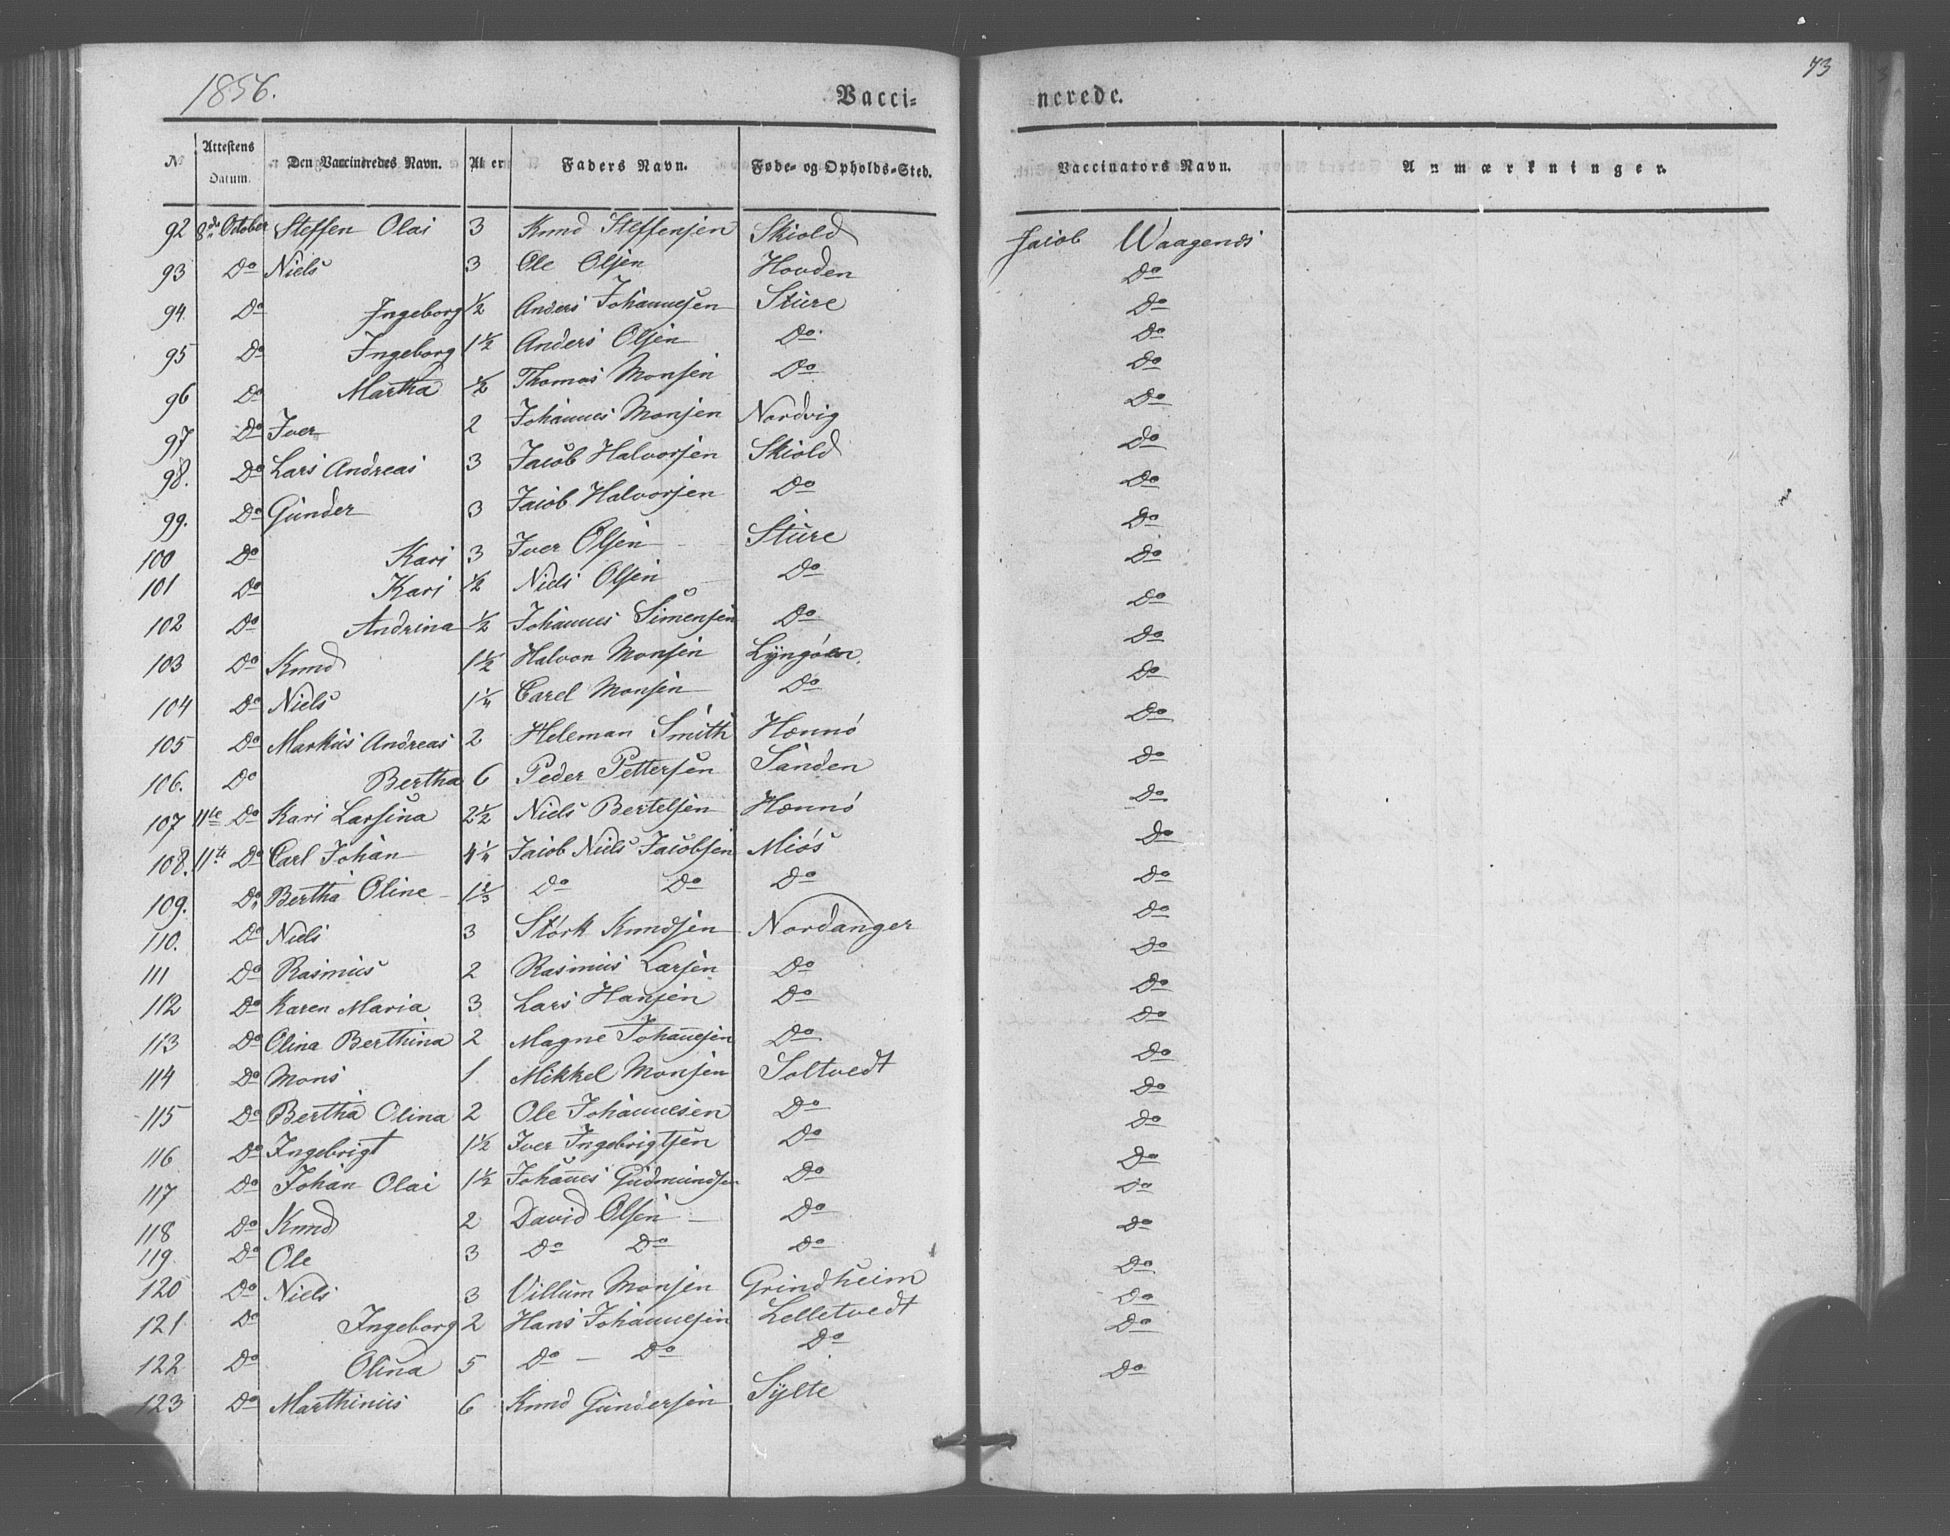 1856.
Vacci-
nerede.
73
No
Attestens Datum.
Den Vaccineredes Navn.
Al er
Faders Navn.
Føde- og Opholds-Sted.
Vaccinators Navn.
Anmærkninger.
92 8de October Steffen Olai 3 Knud Steffensen Skiold Jacob Waagenes
93 Do Niels 3 Ole Olsen Hovden Do
94. Do Ingeborg 1/2 Anders Johannesen Sture Do
95 Do Ingeborg 1 1/2 Anders Olsen Do Do
96 Do Martha 1/2 Thomas Monsen Do Do
97 Do Iver 2 Johannes Monsen Nordvig Do
98. Do Lars Andreas 3 Jacob Halvorsen Skiold Do
99. Do Gunder 3 Jacob Halvorsen Do Do
100 Do Kari 3 Iver Olsen Sture Do
101 Do Kari 1/2 Niels Olsen Do Do
102 Do Andrina 1/2 Johannes Simensen Do Do
103 Do Knud 1 1/2 Halvon Monsen Lyngöen Do
104 Do Niels 1 1/4 Carel Monsen Do Do
105 Do Markus Andreas 2 Heleman Smith Hennö Do
106. Do Bertha 6 Peder Pettersen Sanden Do
107 11te Do Kari Larsina 2 1/2 Niels Bertelsen Hennö Do
108. 11te Do Carl Johan 4 1/4 Jacob Niels Jacobsen Miös Do
109. Do Bertha Oline 1 2/3 Do Do Do Do
110. Do Niels 3 Störk Knudsen Nordanger Do
111 Do Rasmus 2 Rasmus Larsen Do Do
112 Do Karen Maria 3 Lars Hansen Do Do
113 Do Olina Berthina 2 Magne Johannesen Do Do
114 Do Mons 1 Mikkel Monsen Toltvedt Do
115 Do Bertha Olina 2 Ole Johannesen Do Do
116 Do Ingebrigt 1 1/2 Iver Ingebrigtsen Do Do
117 Do Johan Olai 1 1/2 Johannes Gudmundsen Do Do
118 Do Knud 2 David Olsen Do Do
119. Do Ole 3 Do Do Do Do
120 Do Niels 3 Villum Monsen Grindheim Do
121 Do Ingeborg 2 Hans Johannesen Lelletvedt Do
122 Do Olina 5 Do Do Do Do
123 Do Marthinus 6 Knud Gundersen Sylte Do